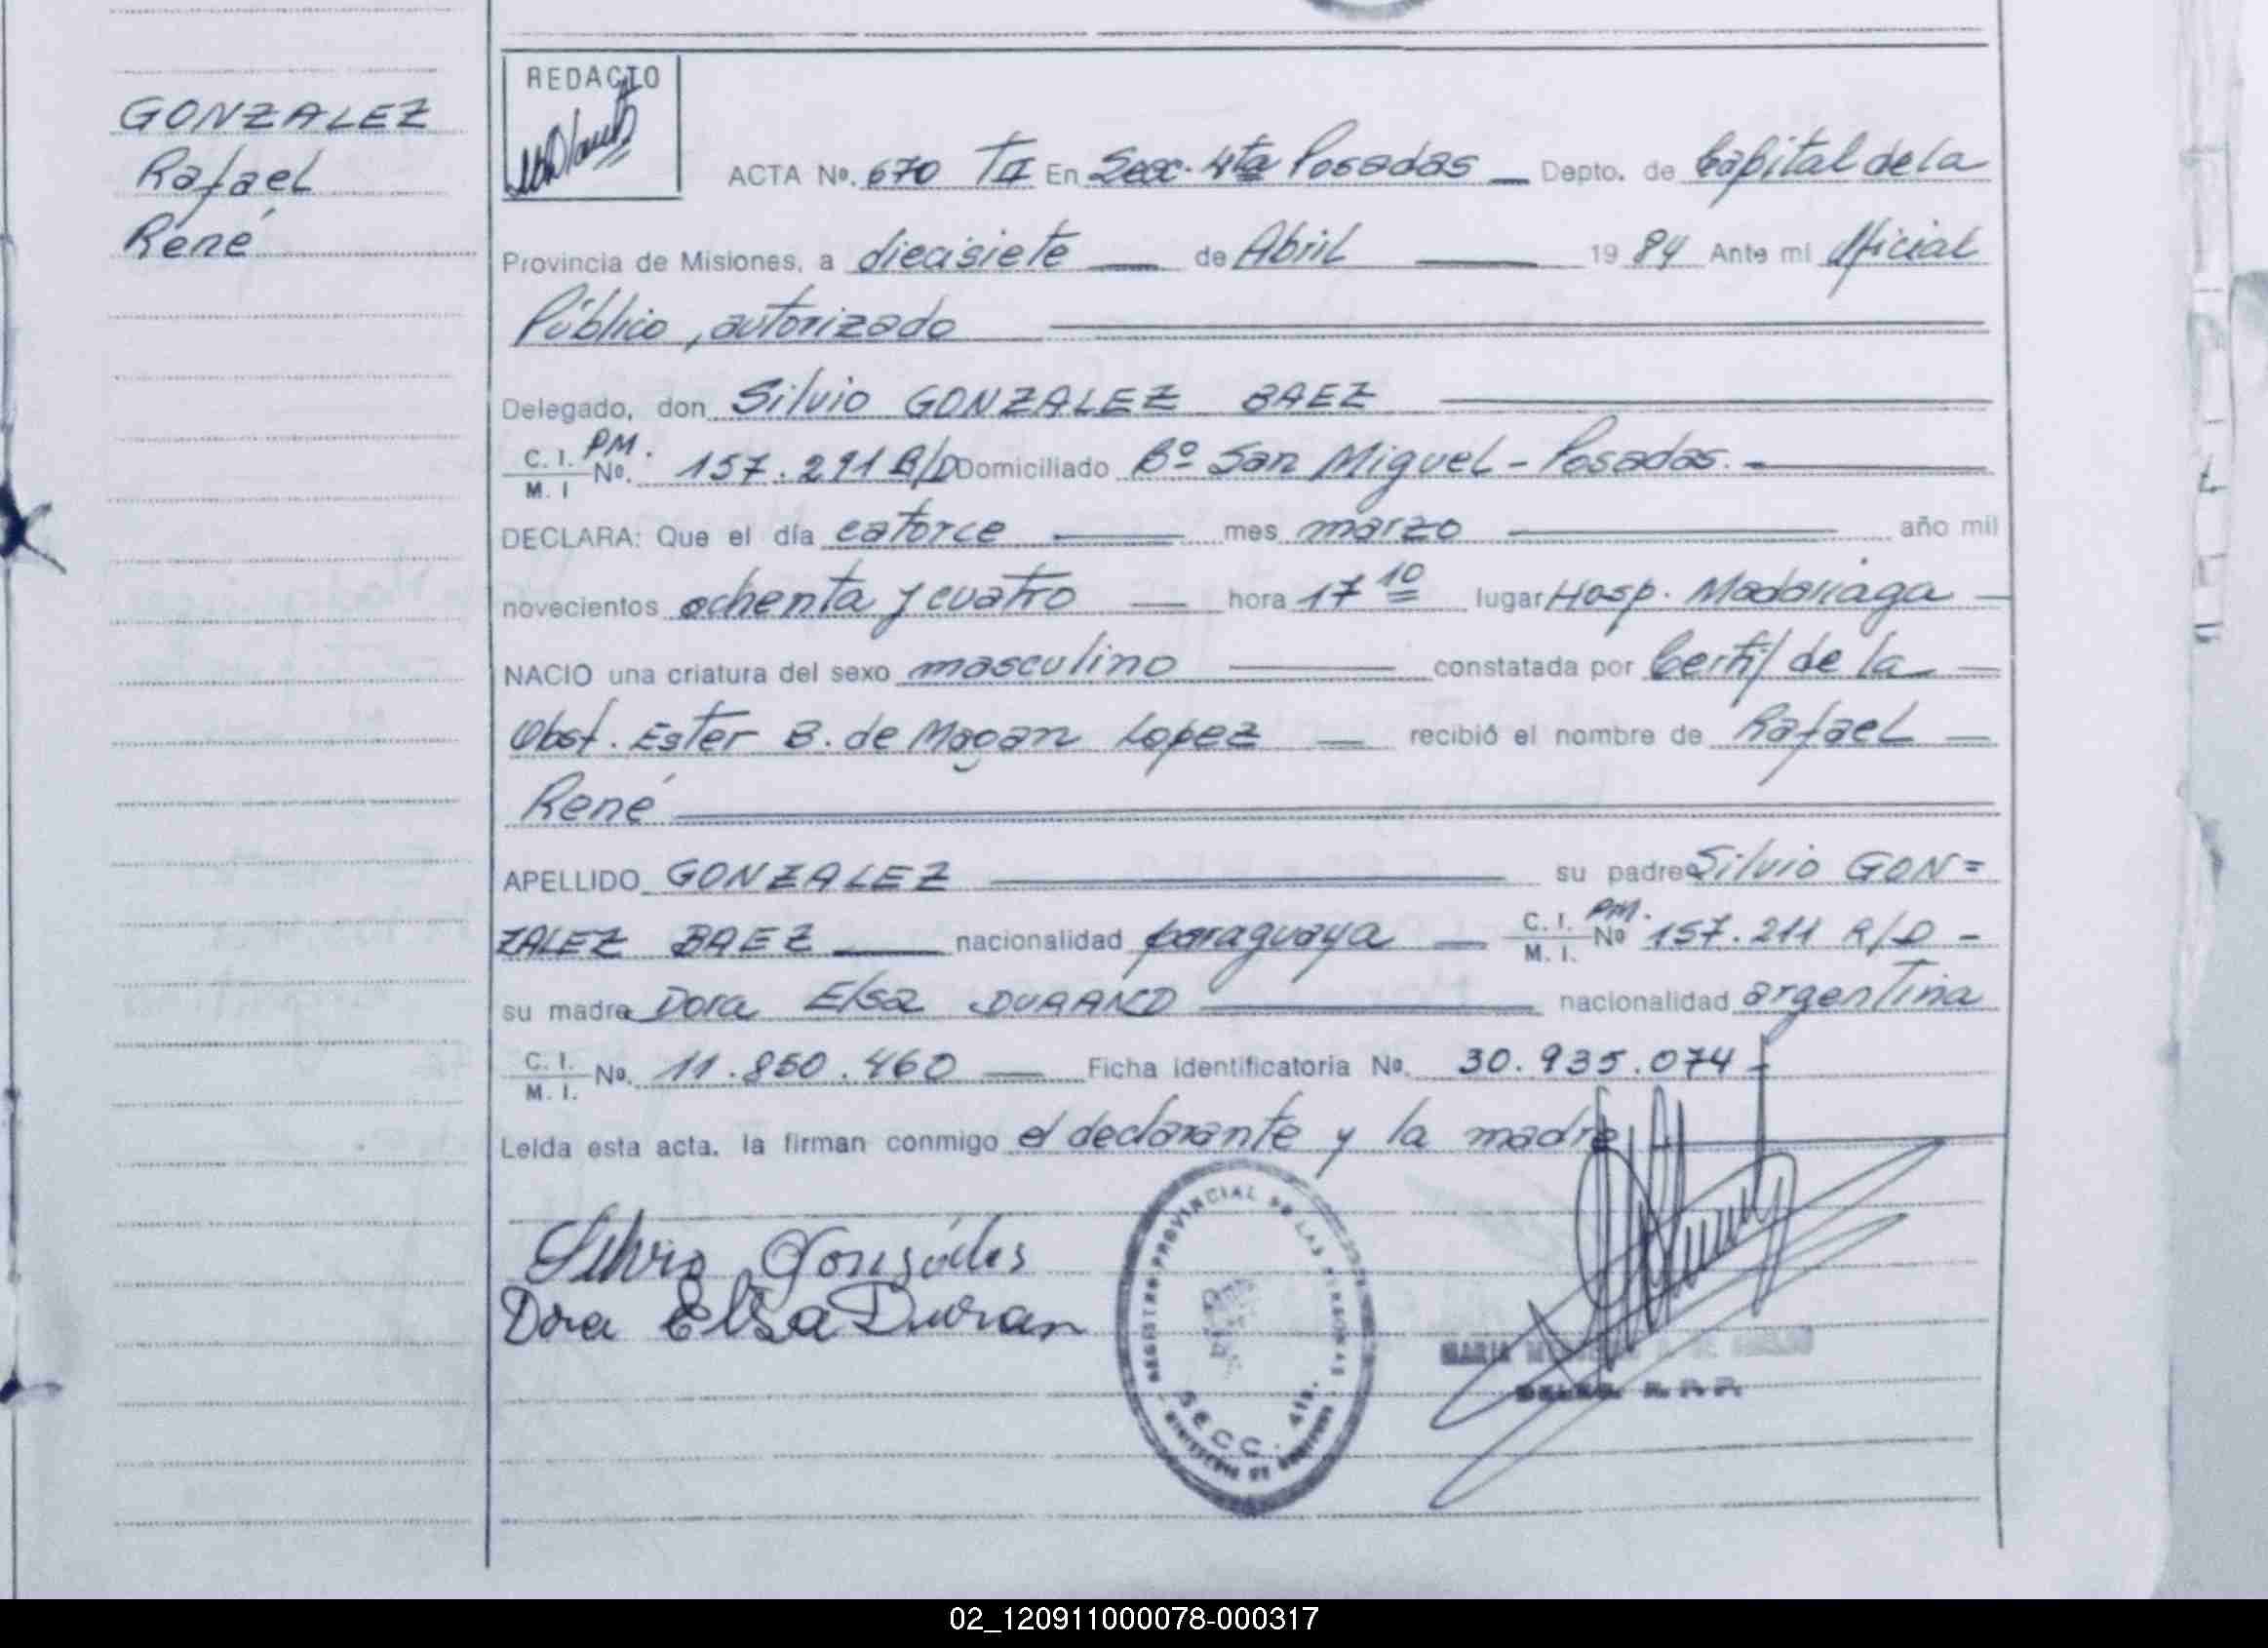 GONZALEZ
Rafael
René
REDACTO
ACTA Nº. 670 TII En Secc. 4ta Posadas Depto. de Capital de la
Provincia de Misiones, a diecisiete de Abril 1984 Ante mi Oficial
Público, autorizado
Delegado, don Silvio GONZALEZ BAEZ
C. I. M. I Nº. PM. 157.291 R/D Domiciliado Bº San Miguel - Posadas.-
DECLARA: Que el día catorce mes marzo año mil
novecientos ochenta y cuatro hora 17 10 lugar Hosp. Madariaga
NACIO una criatura del sexo masculino constatada por Certif/ de la
Obst. Ester B. de Magan Lopez recibió el nombre de Rafael
René
APELLIDO GONZALEZ su padre Silvio GON=
ZALEZ BAEZ nacionalidad paraguaya C. I. M. I. Nº PM. 157.211 R/D -
su madre Dora Elsa DURAND nacionalidad argentina
C. I. M. I. Nº. 11.850.460 Ficha identificatoria Nº. 30.935.074
Leida esta acta, la firman conmigo el declarante y la madre
Silvio Gonsáles
Dora Elsa Duran
REGISTRO PROVINCIAL DE LAS PERSONAS
SECC. 4ta.
MARIA
02_120911000078-000317